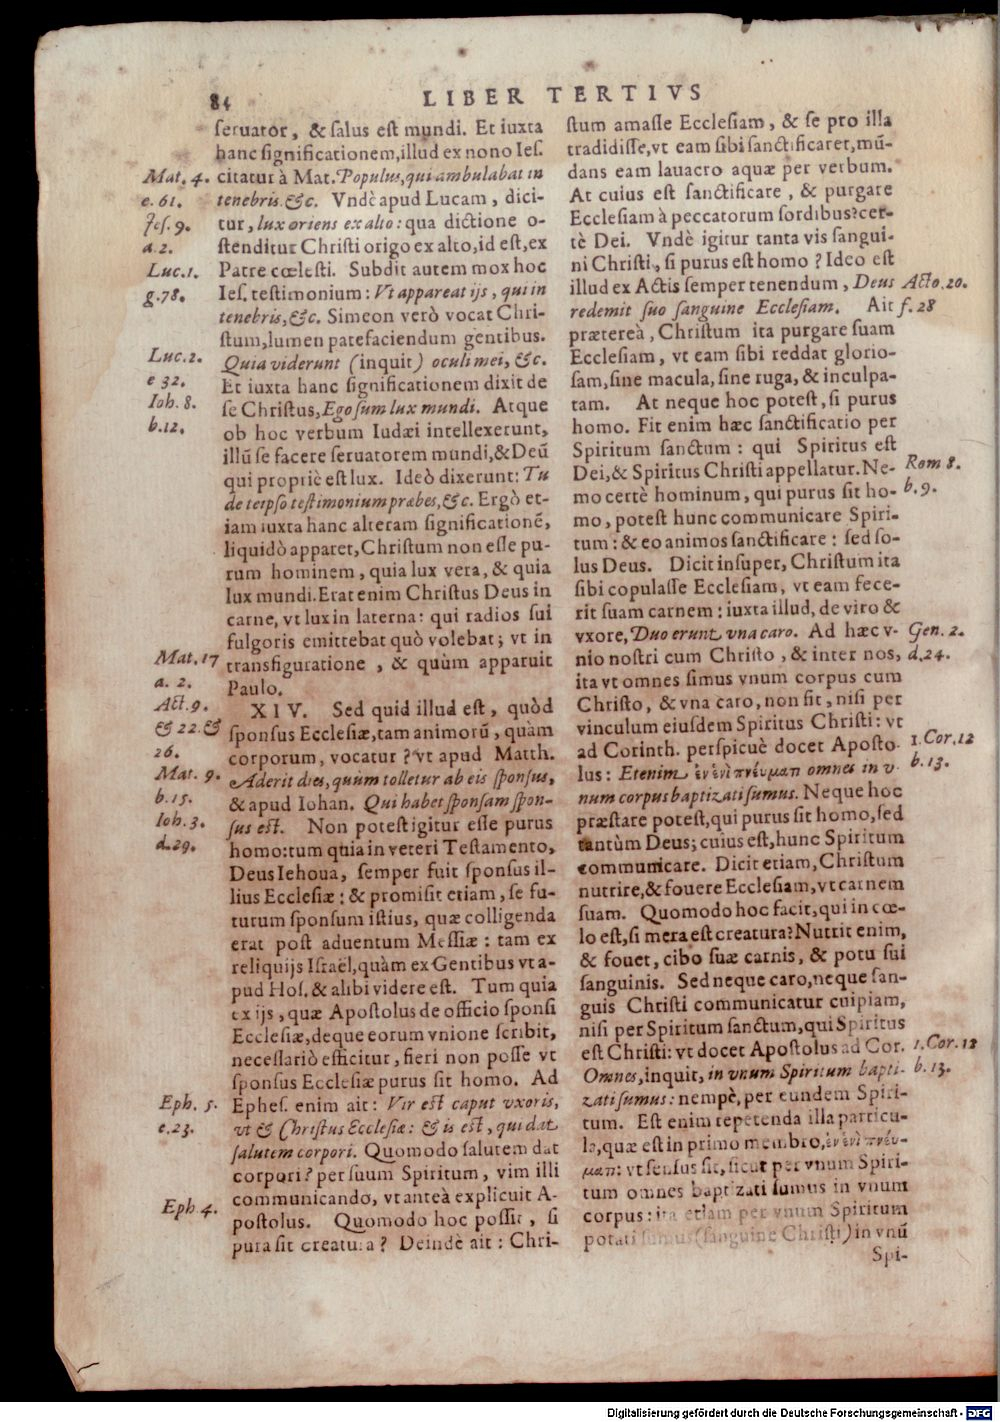 84
LIBER TERTIVS
seruator, & salus est mundi. Et iuxta
hanc significationem, illud ex nono Ies.
citatur à Mat. Populus, qui ambulabat in
tenebris. &c. Vndè apud Lucam, dici-
tur, lux oriens ex alto: qua dictione o-
stenditur Christi origo ex alto, id est, ex
Patre cœlesti. Subdit autem mox hoc
Ies. testimonium: Vt appareat ijs, qui in
tenebris, &c. Simeon verò vocat Chri-
stum, lumen patefaciendum gentibus.
Quia viderunt (inquit) oculi mei, &c.
Et iuxta hanc significationem dixit de
se Christus, Ego sum lux mundi. Atque
ob hoc verbum Iudæi intellexerunt,
illũ se facere seruatorem mundi, & Deũ
qui propriè est lux. Ideò dixerunt: Tu
de teipso testimonium præbes, &c. Ergò et-
iam iuxta hanc alteram significationẽ,
liquidò apparet, Christum non esse pu-
rum hominem, quia lux vera, & quia
lux mundi. Erat enim Christus Deus in
carne, vt lux in laterna: qui radios sui
fulgoris emittebat quò volebat; vt in
transfiguratione, & quùm apparuit
Paulo.
XIV. Sed quid illud est, quòd
sponsus Ecclesiæ, tam animorũ, quàm
corporum, vocatur? vt apud Matth.
Aderit dies, quùm tolletur ab eis sponsus,
& apud Iohan. Qui habet sponsam spon-
sus est. Non potest igitur esse purus
homo: tum quia in veteri Testamento,
Deus Iehoua, semper fuit sponsus il-
lius Ecclesiæ: & promisit etiam, se fu-
turum sponsum istius, quæ colligenda
erat post aduentum Messiæ: tam ex
reliquijs Israël, quàm ex Gentibus vt a-
pud Hos. & alibi videre est. Tum quia
ex ijs, quæ Apostolus de officio sponsi
Ecclesiæ, deque eorum vnione scribit,
necessariò efficitur, fieri non posse vt
sponsus Ecclesiæ purus sit homo. Ad
Ephes. enim ait: Vir est caput vxoris,
vt & Christus Ecclesiæ: & is est, qui dat
salutem corpori. Quomodo salutem dat
corpori? per suum Spiritum, vim illi
communicando, vt anteà explicuit A-
postolus. Quomodo hoc possit, si
pura sit creatura? Deindè ait: Chri-
Mat. 4.
e. 61.
Ies. 9.
a. 2.
Luc. 1.
g. 78.
Luc. 2.
e 32.
Ioh. 8.
b. 12.
Mat. 17
a. 2.
Act. 9.
& 22. &
26.
Mat. 9.
b. 15.
Ioh. 3.
d. 29.
Eph. 5.
e. 23.
Eph 4.
stum amasse Ecclesiam, & se pro illa
tradidisse, vt eam sibi sanctificaret, mũ-
dans eam lauacro aquæ per verbum.
At cuius est sanctificare, & purgare
Ecclesiam à peccatorum sordibus? cer-
tè Dei. Vndè igitur tanta vis sangui-
ni Christi, si purus est homo? Ideo est
illud ex Actis semper tenendum, Deus
redemit suo sanguine Ecclesiam. Ait
prætereà, Christum ita purgare suam
Ecclesiam, vt eam sibi reddat glorio-
sam, sine macula, sine ruga, & inculpa-
tam. At neque hoc potest, si purus
homo. Fit enim hæc sanctificatio per
Spiritum sanctum: qui Spiritus est
Dei, & Spiritus Christi appellatur. Ne-
mo certè hominum, qui purus sit ho-
mo, potest hunc communicare Spiri-
tum: & eo animos sanctificare: sed so-
lus Deus. Dicit insuper, Christum ita
sibi copulasse Ecclesiam, vt eam fece-
rit suam carnem: iuxta illud, de viro &
vxore, Duo erunt vna caro. Ad hæc v-
nio nostri cum Christo, & inter nos,
ita vt omnes simus vnum corpus cum
Christo, & vna caro, non fit, nisi per
vinculum eiusdem Spiritus Christi: vt
ad Corinth. perspicuè docet Aposto-
lus: Etenim ἐν ἑνὶ πνεύματι omnes in v-
num corpus baptizati sumus. Neque hoc
præstare potest, qui purus sit homo, sed
tantùm Deus; cuius est, hunc Spiritum
communicare. Dicit etiam, Christum
nutrire, & fouere Ecclesiam, vt carnem
suam. Quomodo hoc facit, qui in cœ-
lo est, si mera est creatura? Nutrit enim,
& fouet, cibo suæ carnis, & potu sui
sanguinis. Sed neque caro, neque san-
guis Christi communicatur cuipiam,
nisi per Spiritum sanctum, qui Spiritus
est Christi: vt docet Apostolus ad Cor.
Omnes, inquit, in vnum Spiritum bapti-
zati sumus: nempè, per eundem Spiri-
tum. Est enim repetenda illa particu-
la, quæ est in primo membro, ἐν ἑνὶ πνεύ-
ματι: vt sensus sit, sicut per vnum Spiri-
tum omnes baptizati sumus in vnum
corpus: ita etiam per vnum Spiritum
potati sumus (sanguine Christi) in vnũ
Spi-
Acto. 20.
f. 28
Rom 8.
b. 9.
Gen. 2.
d. 24.
1. Cor. 12
b. 13.
1. Cor. 12
b. 13.
Digitalisierung gefördert durch die Deutsche Forschungsgemeinschaft - DFG